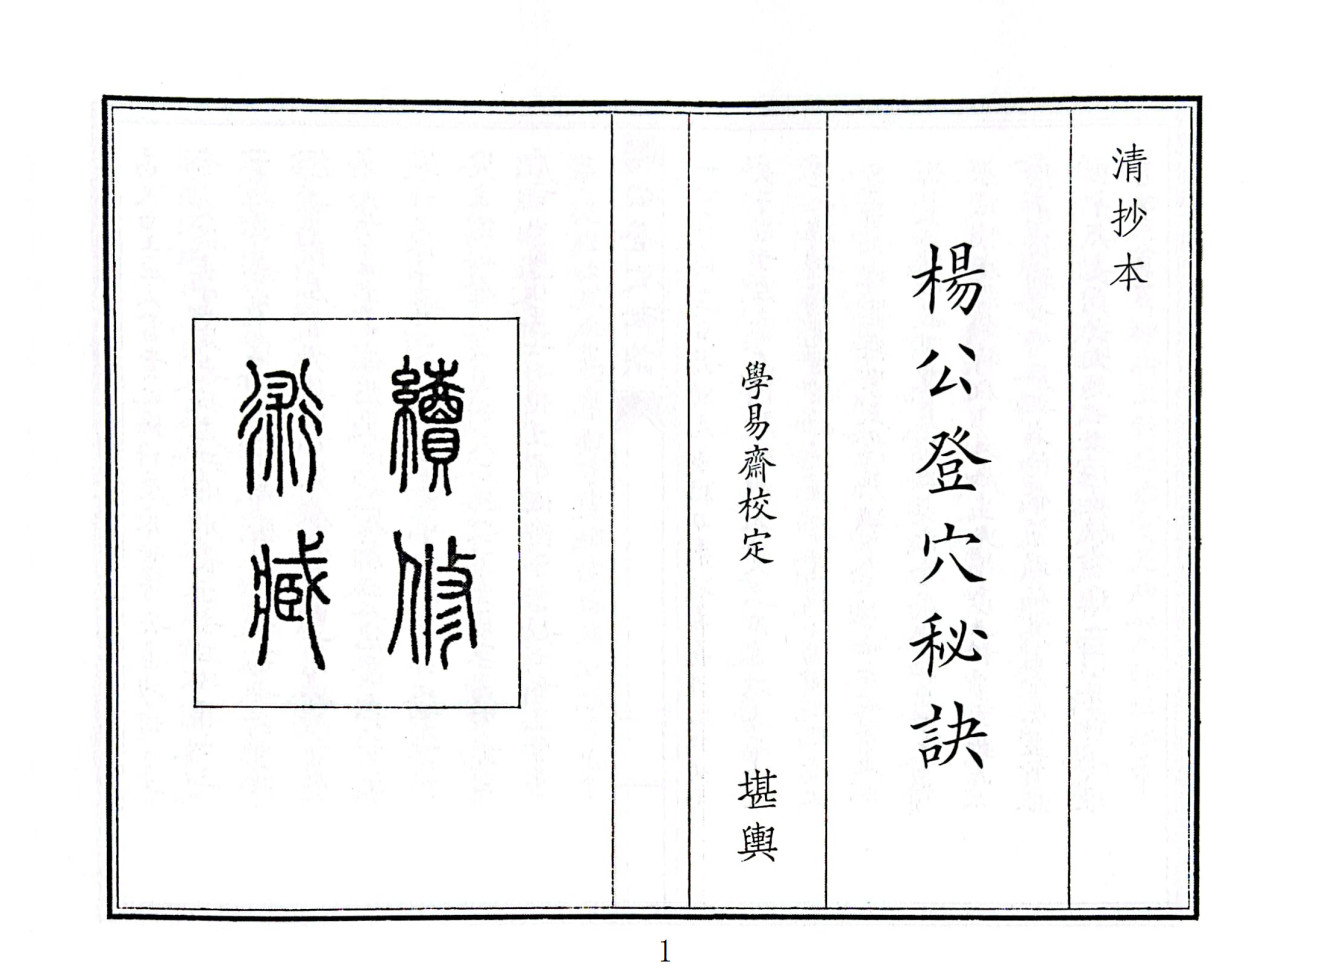 清抄本
楊公登穴秘訣
學易齋校定
堪輿
續修
藏
1